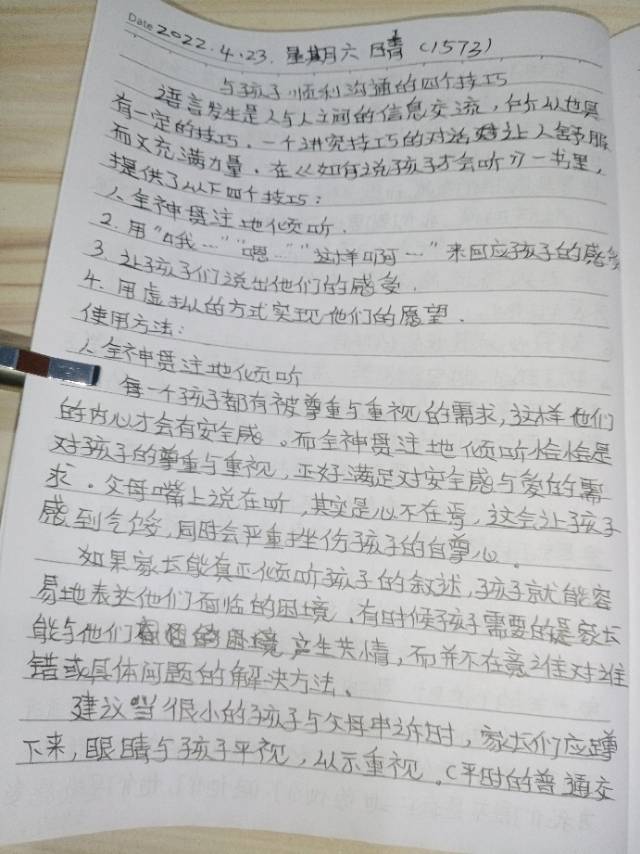 Date 2022.4.23. 星期六 晴 (1573)
与孩子顺利沟通的四个技巧
语言发生是人与人之间的信息交流,所以也具
有一定的技巧。一个讲究技巧的对话让人舒服
而又充满力量。在《如何说孩子才会听》一书里,
提供了以下四个技巧:
1. 全神贯注地倾听.
2. 用“哦…”“嗯…”“这样啊…”来回应孩子的感受
3. 让孩子们说出他们的感受.
4. 用虚拟的方式实现他们的愿望.
使用方法:
1. 全神贯注地倾听
每一个孩子都有被尊重与重视的需求,这样他们
的内心才会有安全感。而全神贯注地倾听恰恰是
对孩子的尊重与重视,正好满足对安全感与爱的需
求。父母嘴上说在听,其实是心不在焉,这会让孩子
感到气馁,同时会严重挫伤孩子的自尊心。
如果家长能真正倾听孩子的叙述,孩子就能容
易地表达他们面临的困境,有时候孩子需要的是家长
能与他们产生共情,而并不在意谁对谁
错或具体问题的解决方法、
建议当很小的孩子与父母申诉时,家长们应蹲
下来,眼睛与孩子平视,以示重视。(平时的普通交